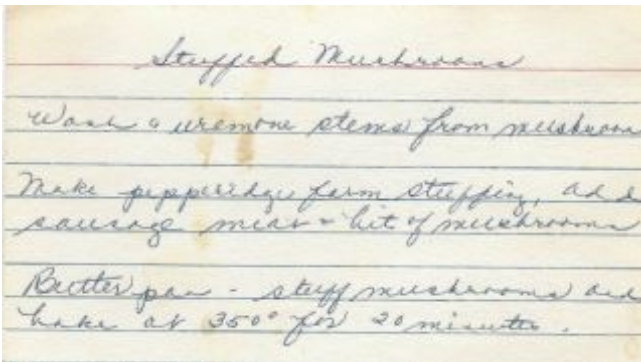 Stuffed Mushrooms
Wash & uremove stems from mushroom
Make pepperidge farm stuffing, add
sausage meat & bit of mushrooms
Butter pan - stuff mushrooms and
bake at 350° for 20 minutes.